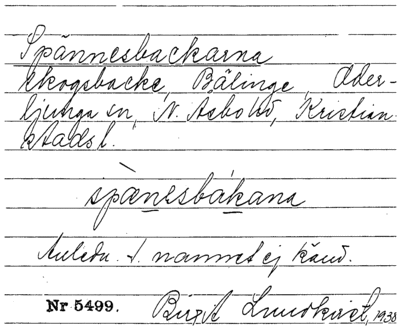 Spännesbackarna
skogsbacke, Bälinge, Oder-
ljunga sn, N. Åsbo hd, Kristian
stads l.
spæ̀nesbákana
Anledn. t. namnet ej känd.
Nr 5499. Birgit Lundkvist, 1938